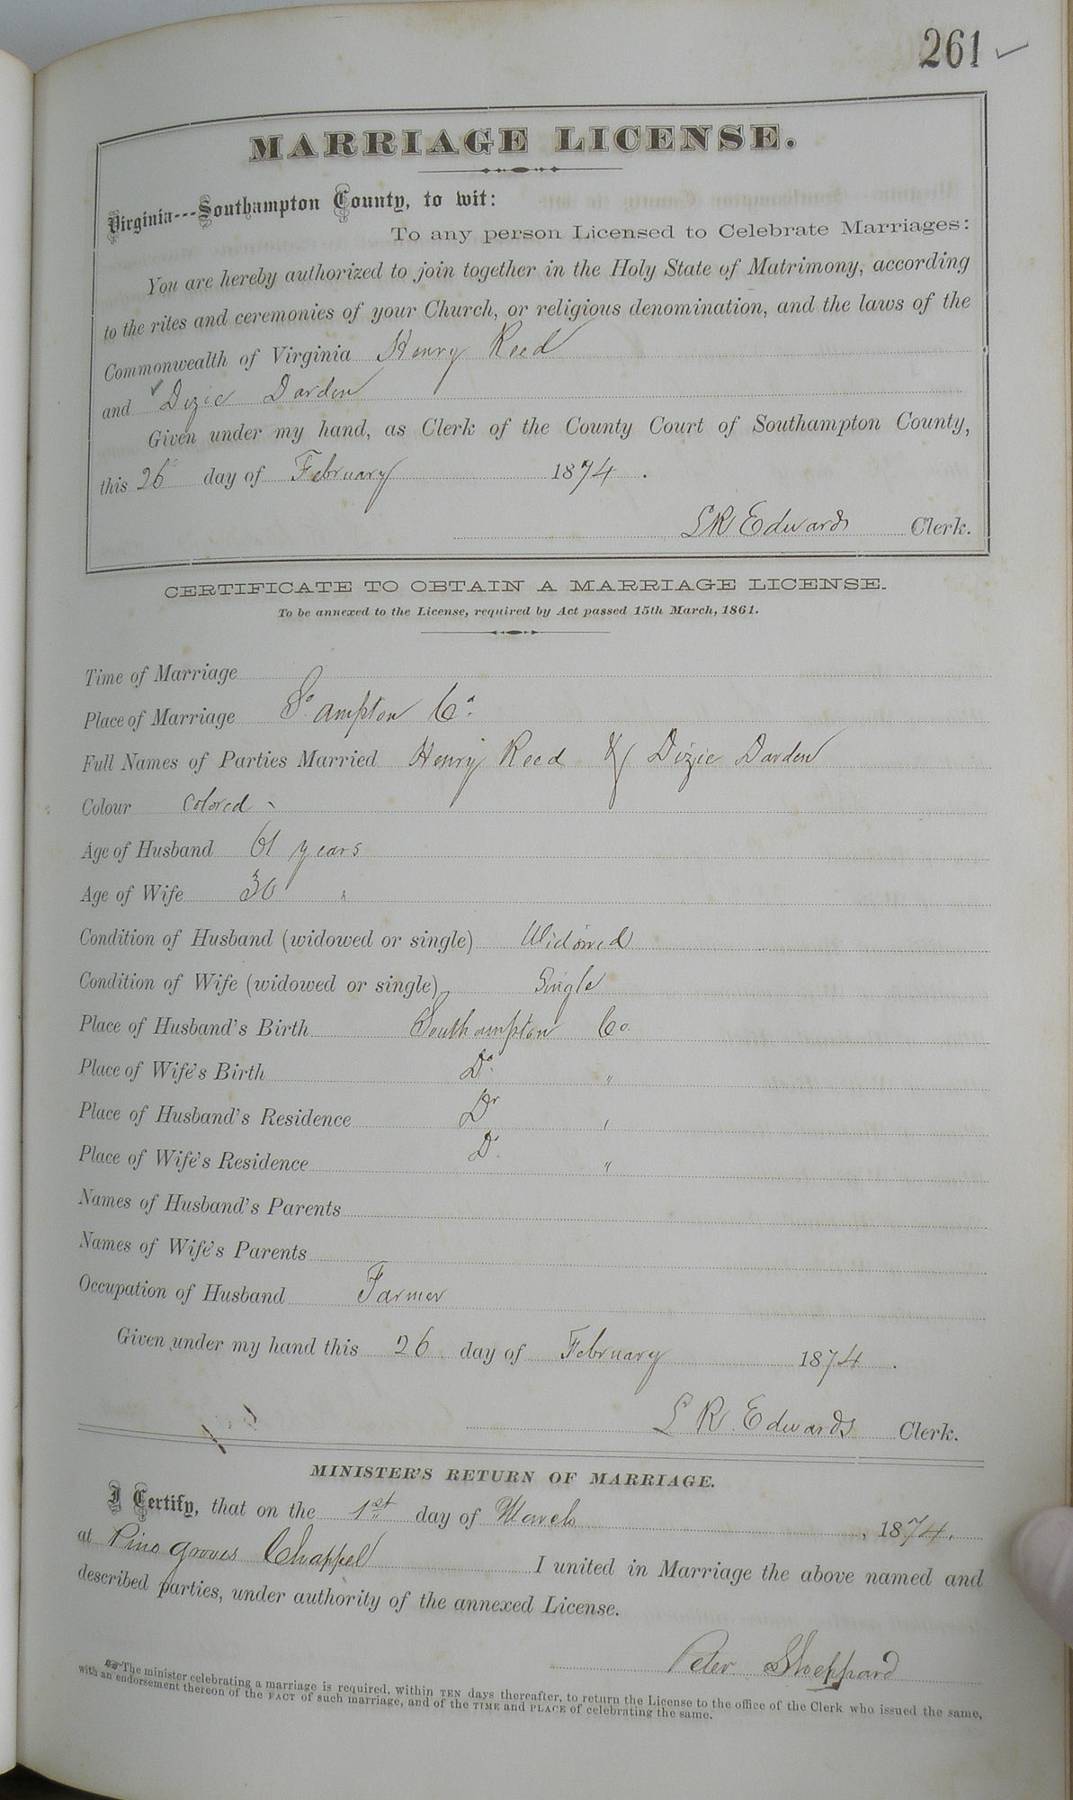 261
MARRIAGE LICENSE.
Virginia---Southampton County, to wit:
To any person Licensed to Celebrate Marriages:
You are hereby authorized to join together in the Holy State of Matrimony, according
to the rites and ceremonies of your Church, or religious denomination, and the laws of the
Commonwealth of Virginia Henry Reed
and Dizie Darden
Given under my hand, as Clerk of the County Court of Southampton County,
this 26 day of February 1874.
L R Edwards Clerk.
CERTIFICATE TO OBTAIN A MARRIAGE LICENSE.
To be annexed to the License, required by Act passed 15th March, 1861.
Time of Marriage
Place of Marriage So ampton Co.
Full Names of Parties Married Henry Reed & Dizie Darden
Colour colored
Age of Husband 61 years
Age of Wife 30 "
Condition of Husband (widowed or single) Widowed
Condition of Wife (widowed or single) Single
Place of Husband's Birth Southampton Co.
Place of Wife's Birth Do. "
Place of Husband's Residence Do "
Place of Wife's Residence Do. "
Names of Husband's Parents
Names of Wife's Parents
Occupation of Husband Farmer
Given under my hand this 26 day of February 1874.
L R. Edwards Clerk.
MINISTER'S RETURN OF MARRIAGE.
I Certify, that on the 1st day of March, 1874.
at Pine groves Chappel I united in Marriage the above named and
described parties, under authority of the annexed License.
Peter Sheppard
The minister celebrating a marriage is required, within TEN days thereafter, to return the License to the office of the Clerk who issued the same,
with an endorsement thereon of the FACT of such marriage, and of the TIME and PLACE of celebrating the same.